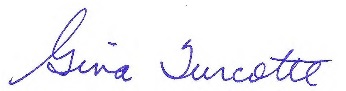 Gina Turcotte